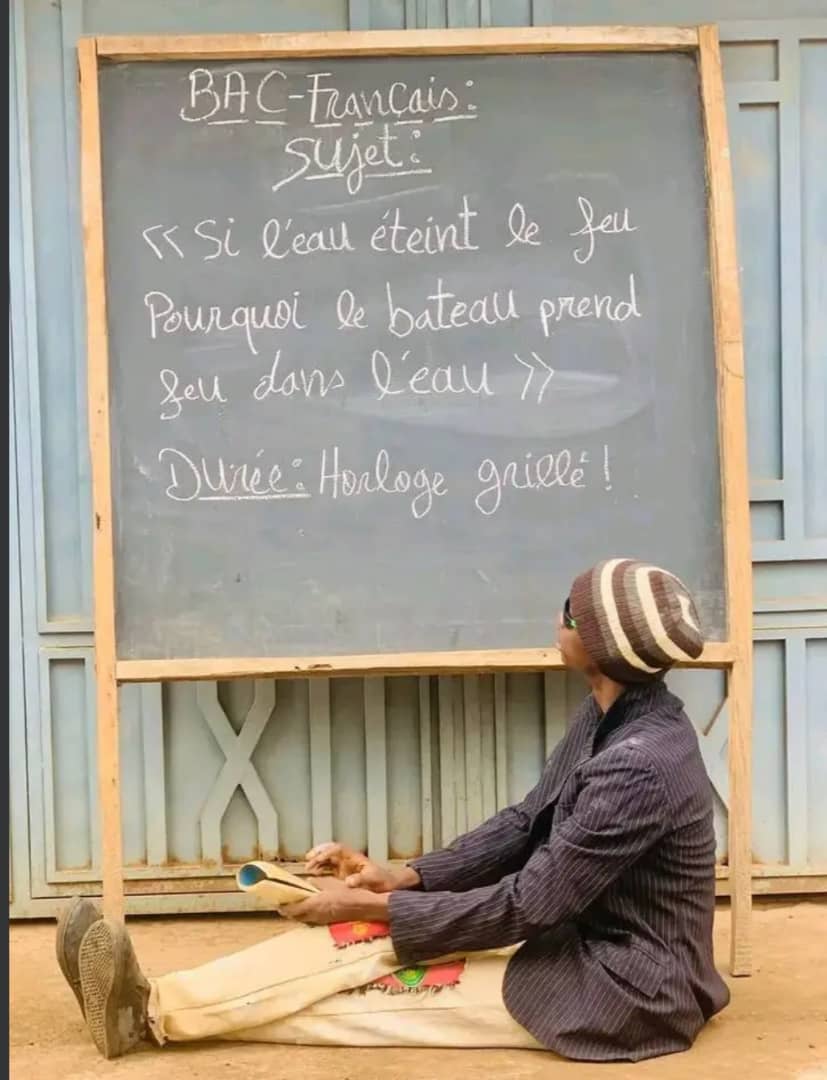 BAC-Français:
Sujet:
<< Si l'eau éteint le feu
Pourquoi le bateau prend
feu dans l'eau >>
Durée: Horloge grillé !